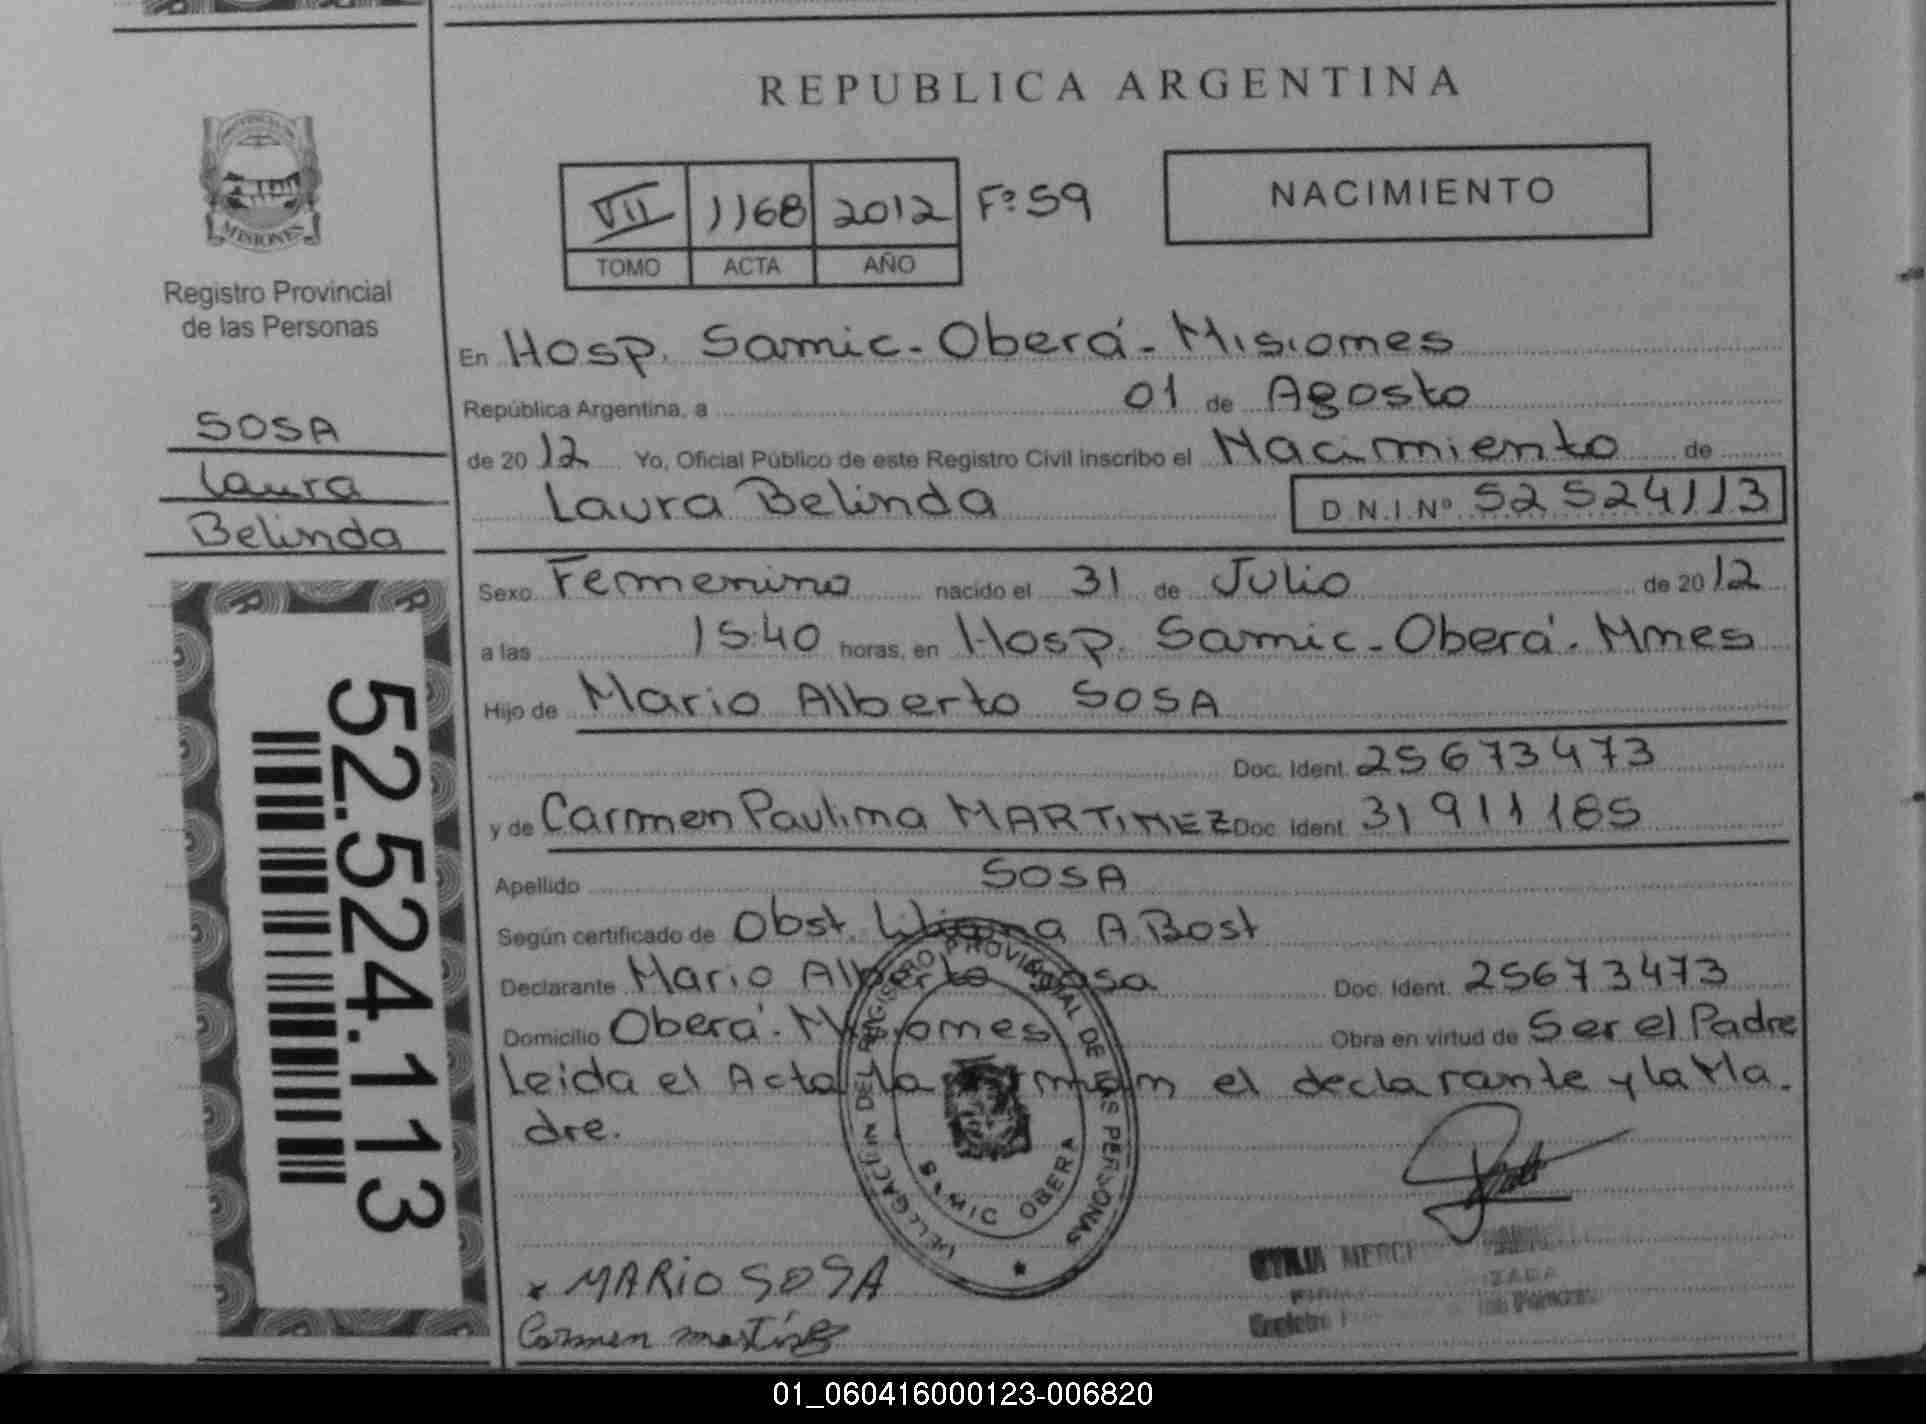 REPUBLICA ARGENTINA
PROVINCIA DE
MISIONES
Registro Provincial
de las Personas
SOSA
Laura
Belinda
52.524.113
VII 1168 2012 Fº 59
TOMO ACTA AÑO
NACIMIENTO
En Hosp. Samic - Oberá - Misiones
República Argentina, a 01 de Agosto
de 2012 Yo, Oficial Público de este Registro Civil inscribo el Nacimiento de
Laura Belinda D.N.I.Nº 52524113
Sexo Femenino nacido el 31 de Julio de 2012
a las 15:40 horas, en Hosp. Samic - Oberá - Mnes
Hijo de Mario Alberto SOSA
Doc. Ident. 25673473
y de Carmen Paulina MARTINEZ Doc. Ident. 31911185
Apellido SOSA
Según certificado de Obst. Liliana A. Bost
Declarante Mario Alberto Sosa Doc. Ident. 25673473
Domicilio Oberá - Misiones Obra en virtud de Ser el Padre
Leida el Acta la Firman el declarante y la Ma-
dre.
DELEGACION DEL REGISTRO PROVINCIAL DE LAS PERSONAS
SAMIC OBERA
x MARIO SOSA
Carmen martínez
Registro
01_060416000123-006820